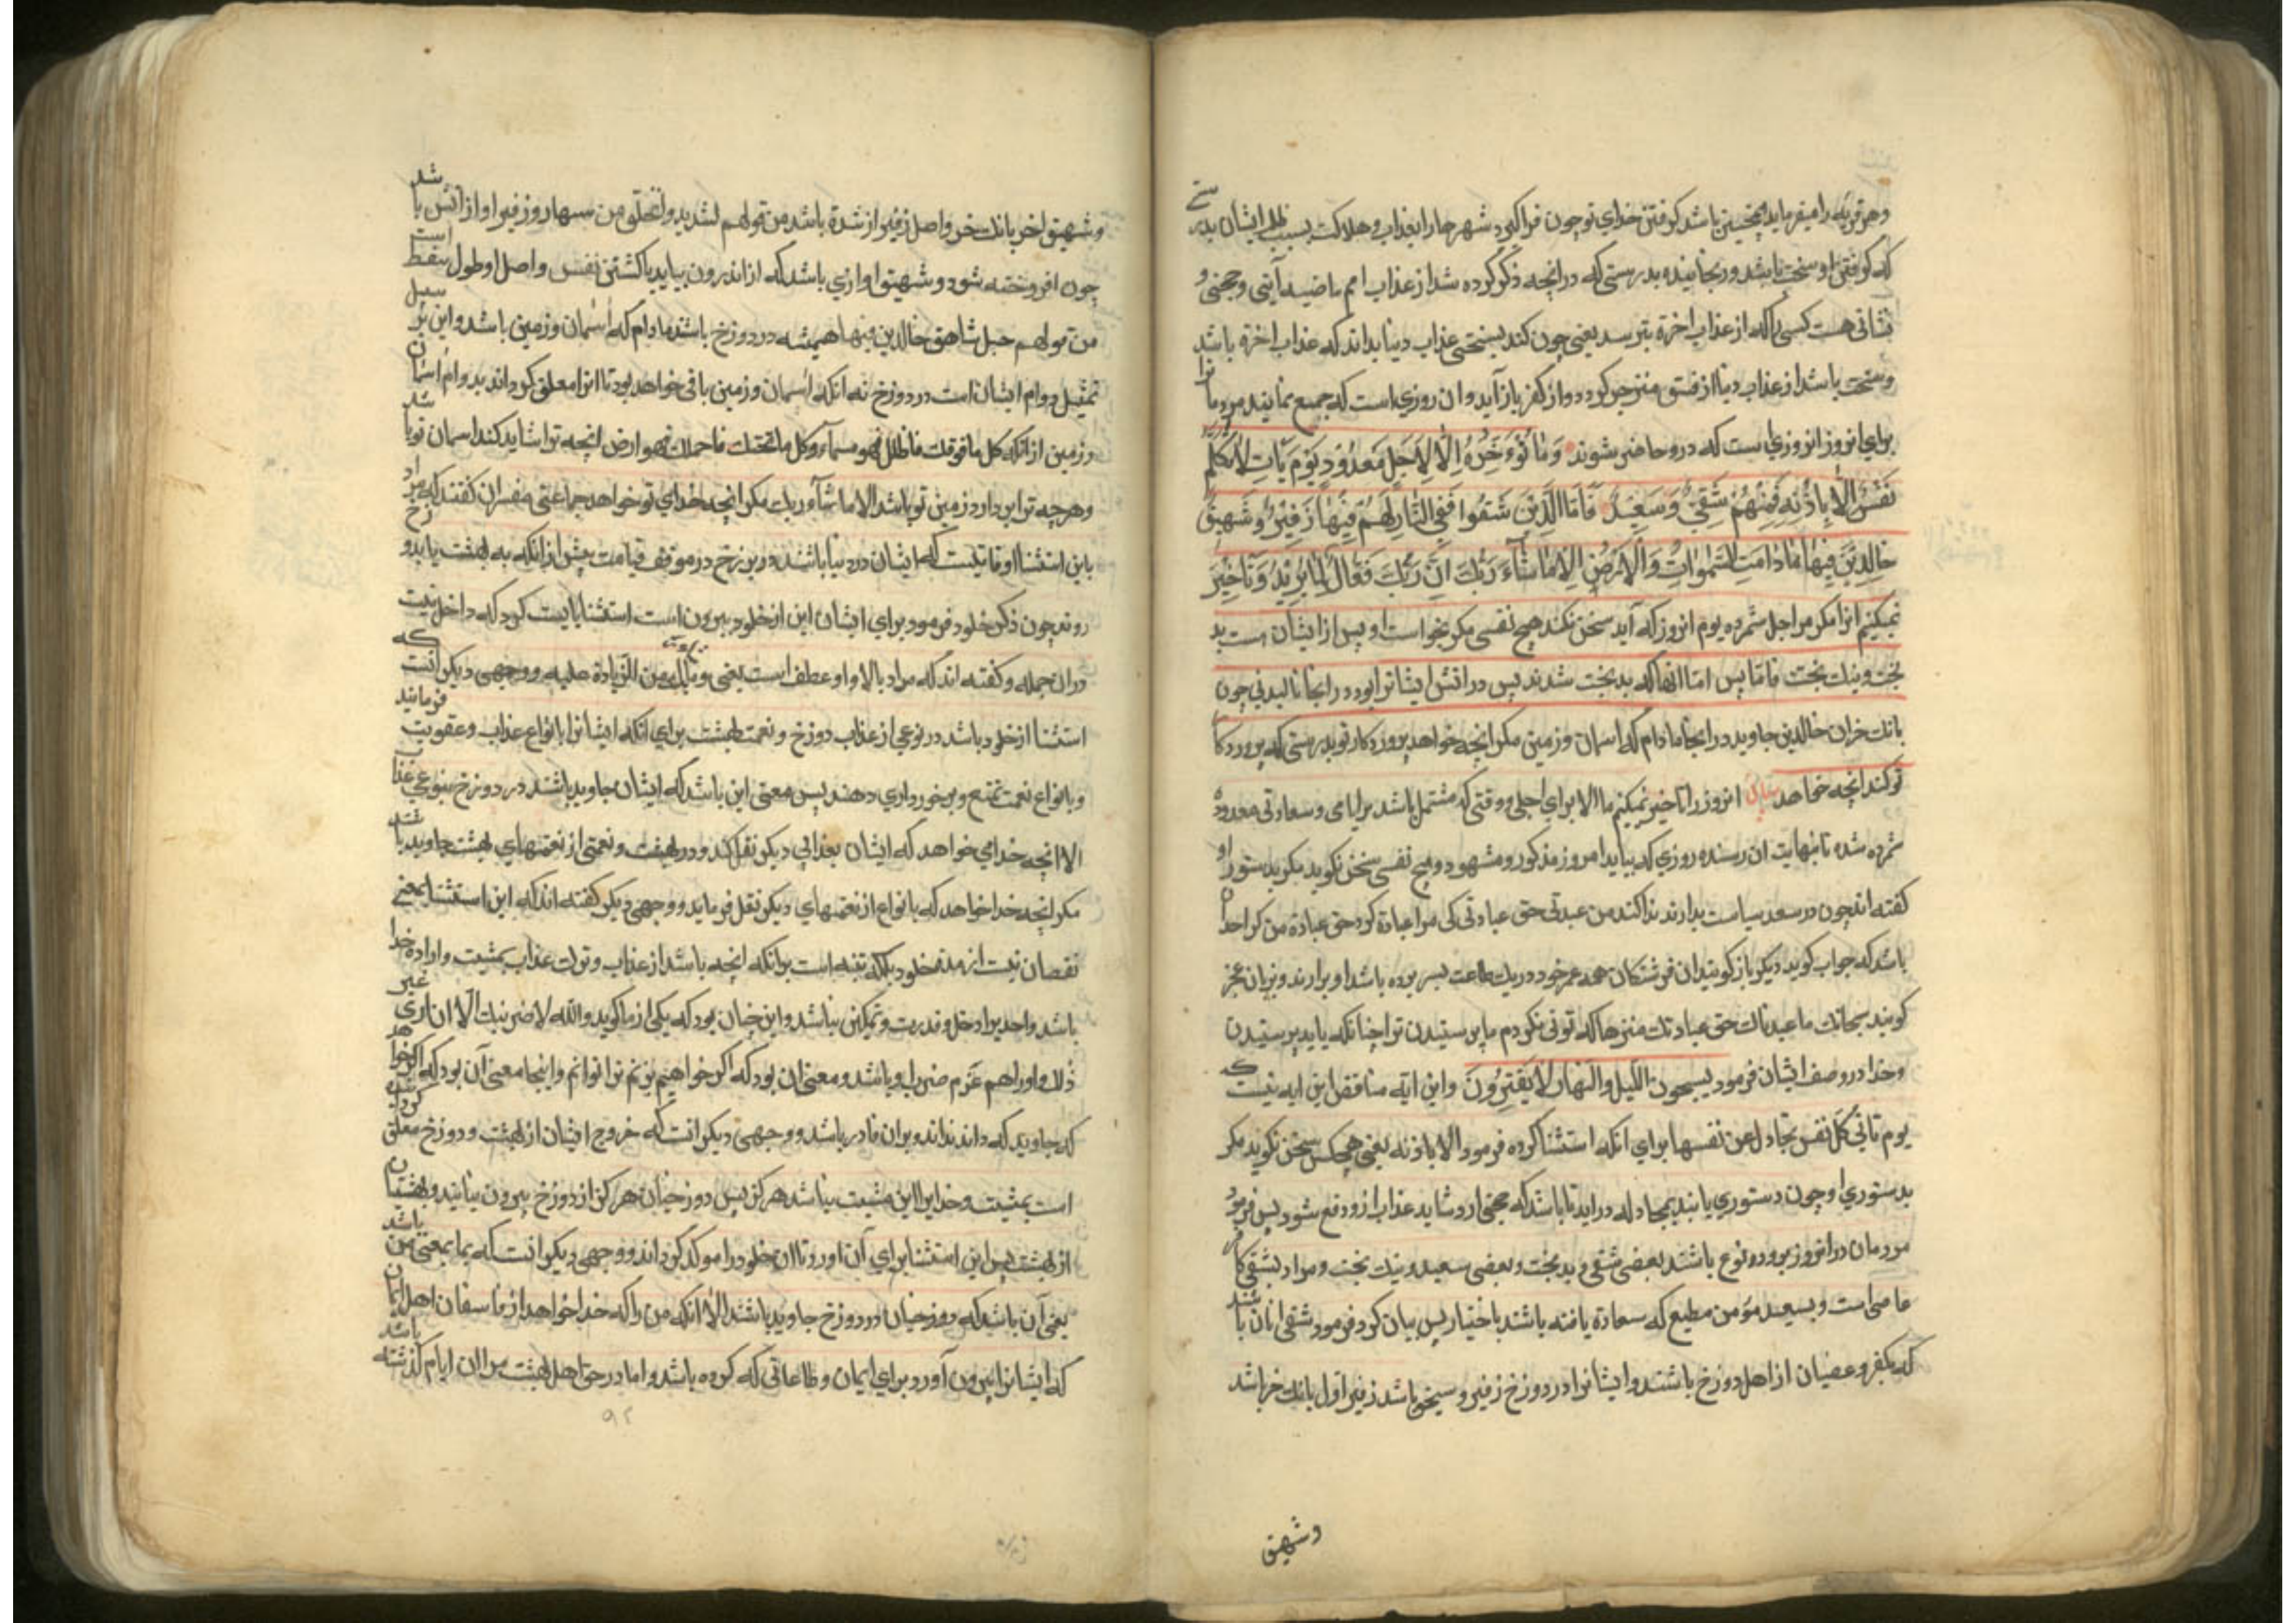 وهر قریه را میفرماید همچنین باشد گرفتن خدای تو چون فراگیرد شهرها را بعذاب و هلاکت بسبب ظلم ایشان بدرستی
که گرفتن او سخت باشد و رنجاینده بدرستی که در انچه ذکر کرده شد از عذاب امم ماضیه آیتی و حجتی و
نشانی هست کسی را که از عذاب اخرة بترسد یعنی چون کند بسختی عذاب دنیا بداند که عذاب اخرة باشد
و سخت باشد از عذاب دنیا از فسق منزجر گردد و از کفر باز آید و ان روزی است که جمیع نمایند مردما نرا
برای انروز انروزی است که درو حاضر شوند وَمَا نُؤَخِّرُهُ اِلَّا لِاَجَلٍ مَعْدُودٍ یَوْمَ یَأْتِ لَا تَکَلَّمُ
نَفْسٌ اِلَّا بِاِذْنِهِ فَمِنْهُمْ شَقِیٌّ وَسَعِیدٌ فَاَمَّا الَّذِینَ شَقُوا فَفِی النَّارِ لَهُمْ فِیهَا زَفِیرٌ وَشَهِیقٌ
خَالِدِینَ فِیهَا مَا دَامَتِ السَّمٰوَاتُ وَالْاَرْضُ اِلَّا مَا شَآءَ رَبُّکَ اِنَّ رَبَّکَ فَعَّالٌ لِمَا یُرِیدُ وتاخیر
نمیکنیم انرا مکر مر اجل شمرده یوم انروز که آید سخن نکند هیچ نفسی مکر بخواست او پس از ایشان است بد
بخت و نیک بخت فاما پس امّا انها که بد بخت شدند پس در اتش ایشانرا بود در انجا نالیدنی چون
بانک خران خالدین جاوید در انجا مادام که اسمان و زمین مکر انچه خواهد پروردکار تو بدرستی که پروردکا
تو کند انچه خواهد انروز را تاخیر نمیکنیم ما الا برای اجلی و وقتی که مشتمل باشد بر ایامی و سعاوتی معدوده
شمرده شده تا بنهایت ان رسنده روزی که بیاید امروز مذکور و مشهود و هیچ نفسی سخن نکوید مکر بدستور او
کفته اند چون در سعد سیاست بدارند ندا کنند من عبدنی حق عبادتی کی مرا عبادة کرد حق عبادة من کرا حد ان
باشد که جواب کوید دیکر باز کویند ان فرشتکان همه عمر خود در یک طاعت بسر برده باشد او برارند و بزبان عجز
کویند سبحانک ما عبدناک حق عبادتک منزها که توئی نکردم ما پرستیدن ترا چنانکه باید پرستیدن
وخدا در وصف ایشان فرمود یسبحون اللّیل والنّهار لا یَفْتُرُونَ واین ایه مناقض این ایه نیست که
یوم تاتی کُلّ نفس تجادل عن نفسها برای انکه استثنا کرده فرمود الا باذنه یعنی هیچکس سخن نکوید مکر
بدستوری او چون دستوری یابند بمجادله در اید تا باشد که حجتی ارد شاید عذاب ازو دفع شود پس فرمود
مردمان در انروز بر دو نوع باشند بعضی شقی و بد بخت و بعضی سعید و نیک بخت و مراد بشقی کافر
عاصی است و بسعید مؤمن مطیع که سعادة یافته باشند باختیار پس بیان کرد فرمود شقی انان باشند
که بکفر و عصیان از اهل دوزخ باشند و ایشانرا در دوزخ زفیر و سیحق باشد زفیر اول بانک خر باشد
وشهیق
وشهیق اخر بانک خر و اصل زفیر از شدة باشد من قولهم لشدید وانخلق من سها روز فیر اواز اتش باشد
چون افروخته شود و شهیق اوازی باشد که از اندرون بیاید باکشتن نفس و اصل او طول است
من قولهم جبل شاهق خالدین فیها همیشه در دوزخ باشد مادام که اسمان و زمین باشد و این بر سبیل
تمثیل دوام ایشان است در دوزخ نه انکه اسمان و زمین باقی خواهد بود تا انرا معلق کرداند بدوام اسمان
و زمین از انکه کل ما فوقک فاظلک فهو سمآء وکل ما تحتک فاحملک فهو ارض انچه ترا شاید کند اسمان تو باشد
وهرچه ترا بر دارد زمین تو باشد الا ما شآء ربک مکر انچه خدای تو خواهد جماعتی مفسران کفتند که مراد
باین استثنا اوقاتیست که ایشان در دنیا باشند و در برزخ در موقف قیامت پیش از انکه به بهشت یابدو زخ
روند چون ذکر خلود فرمود برای ایشان این از خلود بیرون است استثنا بایست کرد که داخل نیست
در ان جمله و کفته اند که مراد بالا واو عطف است یعنی وما شاء ربک من الزیادة علیه و وجهی دیکر انست که
استثنا از خلود باشد در نوعی از عذاب دوزخ و نعمت بهشت برای انکه ایشانرا بانواع عذاب و عقوبت فرمایند
و بانواع نعمت تمتع و برخورداری دهند پس معنی این باشد که ایشان جاوید باشند در دوزخ بنوعی عذاب
الا انچه خدای خواهد که ایشان بعذابی دیکر نقل کند و در بهشت و نعمتی از نعمتهای بهشت جاوید باشند
مکر انچه خدا خواهد که بانواع از نعمتهای دیکر نقل فرماید و وجهی دیکر کفته اند که این استثنا بمعنی
نقصان نیست از مدة خلود بلکه تنبه است بر انکه انچه باشد از عذاب و ترک عذاب بمشیت و ارادة خدا
باشد واحدیرا دخل و قدرت و تمکین نباشد و این چنان بود که یکی از ما کوید والله لاضربنک الا ان اری غیر
ذلک و اورا هم عزم ضرب او باشد و معنی ان بود که اکر خواهیم بزنم ترا توانم و اینجا معنی آن بود که اکر خواهد
که جاوید که داند نداند و بر ان قادر باشد و وجهی دیکر انست که خروج ایشان از بهشت و دوزخ معلق کرده
است بمشیت و خدایرا این مشیت نباشد هرکز پس دوزخیان هرکز از دوزخ بیرون نیایند و بهشتیان
از بهشت پس این استثنا برای آن اورد تا ان خلود را موکد کرداند و وجهی دیکر انست که بما بمعنی من باشد
یعنی آن باشد که دوزخیان در دوزخ جاوید باشند الا انکه من را که خدا خواهد از فاسقان اهل ایمان
که ایشانرا بیرون آورد برای ایمان و طاعاتی که کرده باشد و اما در حق اهل بهشت مراد ان ایام کذشته باشد
۹۲